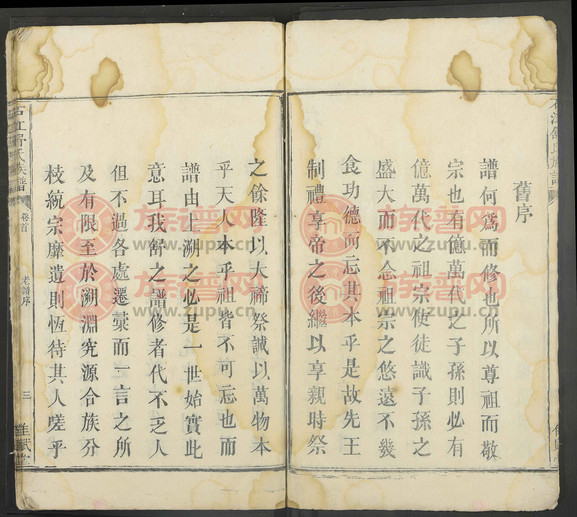 舊序
譜何爲而修也所以尊祖而敬
宗也有億萬代之子孫則必有
億萬代之祖宗使徒識子孫之
盛大而不念祖宗之悠遠不幾
食功德而忘其本乎是故先王
制禮享帝之後繼以享親時祭
之餘隆以大禘祭誠以萬物本
乎天人本乎祖皆不可忘也而
譜由上溯之必是一世始實此
意耳我舒之譜修者代不乏人
但不過各處遷彙而一言之所
及有限至於溯淵究源合族分
枝統宗靡遺則恆待其人嗟乎
氏族譜
卷首
老譜序
三
族譜网
www.zupu.cn
族譜网
www.zupu.cn
族譜网
www.zupu.cn
族譜网
www.zupu.cn